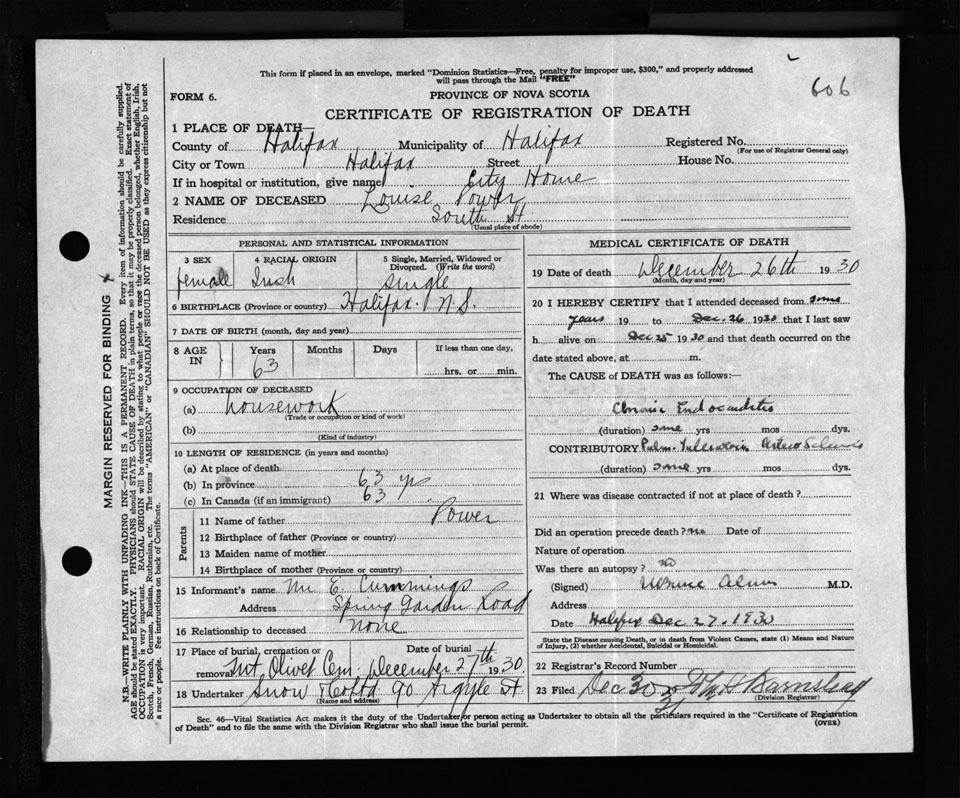 This form if placed in an envelope, marked "Dominion Statistics—Free, penalty for improper use, $300," and properly addressed
will pass through the Mail "FREE"
606
FORM 6.
PROVINCE OF NOVA SCOTIA
CERTIFICATE OF REGISTRATION OF DEATH
1 PLACE OF DEATH—
County of Halifax Municipality of Halifax Registered No.
(For use of Registrar General only)
City or Town Halifax Street House No.
If in hospital or institution, give name City Home
2 NAME OF DECEASED Louise Power
Residence South St
(Usual place of abode)
PERSONAL AND STATISTICAL INFORMATION
3 SEX 4 RACIAL ORIGIN 5 Single, Married, Widowed or
Divorced. (Write the word)
female Irish single
6 BIRTHPLACE (Province or country) Halifax. N.S.
7 DATE OF BIRTH (month, day and year)
8 AGE IN Years Months Days If less than one day,
63 hrs. or min.
9 OCCUPATION OF DECEASED
(a) housework
(Trade or occupation or kind of work)
(b)
(Kind of industry)
10 LENGTH OF RESIDENCE (in years and months)
(a) At place of death
(b) In province 63 yrs
(c) In Canada (if an immigrant) 63
Parents
11 Name of father Power
12 Birthplace of father (Province or country)
13 Maiden name of mother
14 Birthplace of mother (Province or country)
15 Informant's name Mr E. Cummings
Address Spring Garden Road
16 Relationship to deceased none
17 Place of burial, cremation or Date of burial
removal Mt Olivet Cem. December 27th 1930
18 Undertaker Snow & Co Ltd 90 Argyle St
(Name and address)
MEDICAL CERTIFICATE OF DEATH
19 Date of death December 26th 1930
(Month, day and year)
20 I HEREBY CERTIFY that I attended deceased from some
years 19 to Dec. 26 1930 that I last saw
h alive on Dec 25 1930 and that death occurred on the
date stated above, at m.
The CAUSE of DEATH was as follows:—
Chronic Endocarditis
(duration) some yrs mos dys.
CONTRIBUTORY Pulm. Tuberculosis Arterio Sclerosis
(duration) some yrs mos dys.
21 Where was disease contracted if not at place of death?
Did an operation precede death? no Date of
Nature of operation
Was there an autopsy? no
(Signed) M.D.
Address
Date Halifax Dec 27. 1930
State the Disease causing Death, or in death from Violent Causes, state (1) Means and Nature
of Injury, (2) whether Accidental, Suicidal or Homicidal.
22 Registrar's Record Number
23 Filed Dec 30
(Division Registrar)
Sec. 46—Vital Statistics Act makes it the duty of the Undertaker or person acting as Undertaker to obtain all the particulars required in the "Certificate of Registration
of Death" and to file the same with the Division Registrar who shall issue the burial permit.
(OVER)
MARGIN RESERVED FOR BINDING
N.B.—WRITE PLAINLY WITH UNFADING INK—THIS IS A PERMANENT RECORD. Every item of information should be carefully supplied.
AGE should be stated EXACTLY. PHYSICIANS should STATE CAUSE OF DEATH in plain terms, so that it may be properly classified. Exact statement of
OCCUPATION is very important. RACIAL ORIGIN will be described by stating to what people or race the deceased person belonged, whether English, Irish,
Scotch, French, German, Russian, Ruthenian, etc. The terms "AMERICAN" or "CANADIAN" SHOULD NOT BE USED as they express citizenship but not
a race or people. See instructions on back of Certificate.